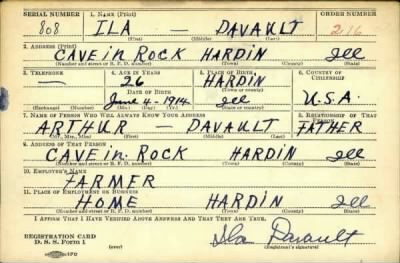 SERIAL NUMBER 1. NAME (Print) ORDER NUMBER
808 ILA — DAVAULT 216
(First) (Middle) (Last)
2. ADDRESS (Print)
CAVE IN ROCK HARDIN Ill
(Number and street or R. F. D. number) (Town) (County) (State)
3. TELEPHONE 4. AGE IN YEARS 5. PLACE OF BIRTH 6. COUNTRY OF CITIZENSHIP
— 26 HARDIN
DATE OF BIRTH (Town or county)
June 4 - 1914 Ill U.S.A.
(Exchange) (Number) (Mo.) (Day) (Yr.) (State or country)
7. NAME OF PERSON WHO WILL ALWAYS KNOW YOUR ADDRESS 8. RELATIONSHIP OF THAT PERSON
ARTHUR — DAVAULT FATHER
(Mr., Mrs., Miss) (First) (Middle) (Last)
9. ADDRESS OF THAT PERSON
CAVE in ROCK HARDIN Ill
(Number and street or R. F. D. number) (Town) (County) (State)
10. EMPLOYER'S NAME
FARMER
11. PLACE OF EMPLOYMENT OR BUSINESS
HOME HARDIN Ill
(Number and street or R. F. D. number) (Town) (County) (State)
I AFFIRM THAT I HAVE VERIFIED ABOVE ANSWERS AND THAT THEY ARE TRUE.
REGISTRATION CARD
D. S. S. Form 1 (over) Ila Davault
(Registrant's signature)